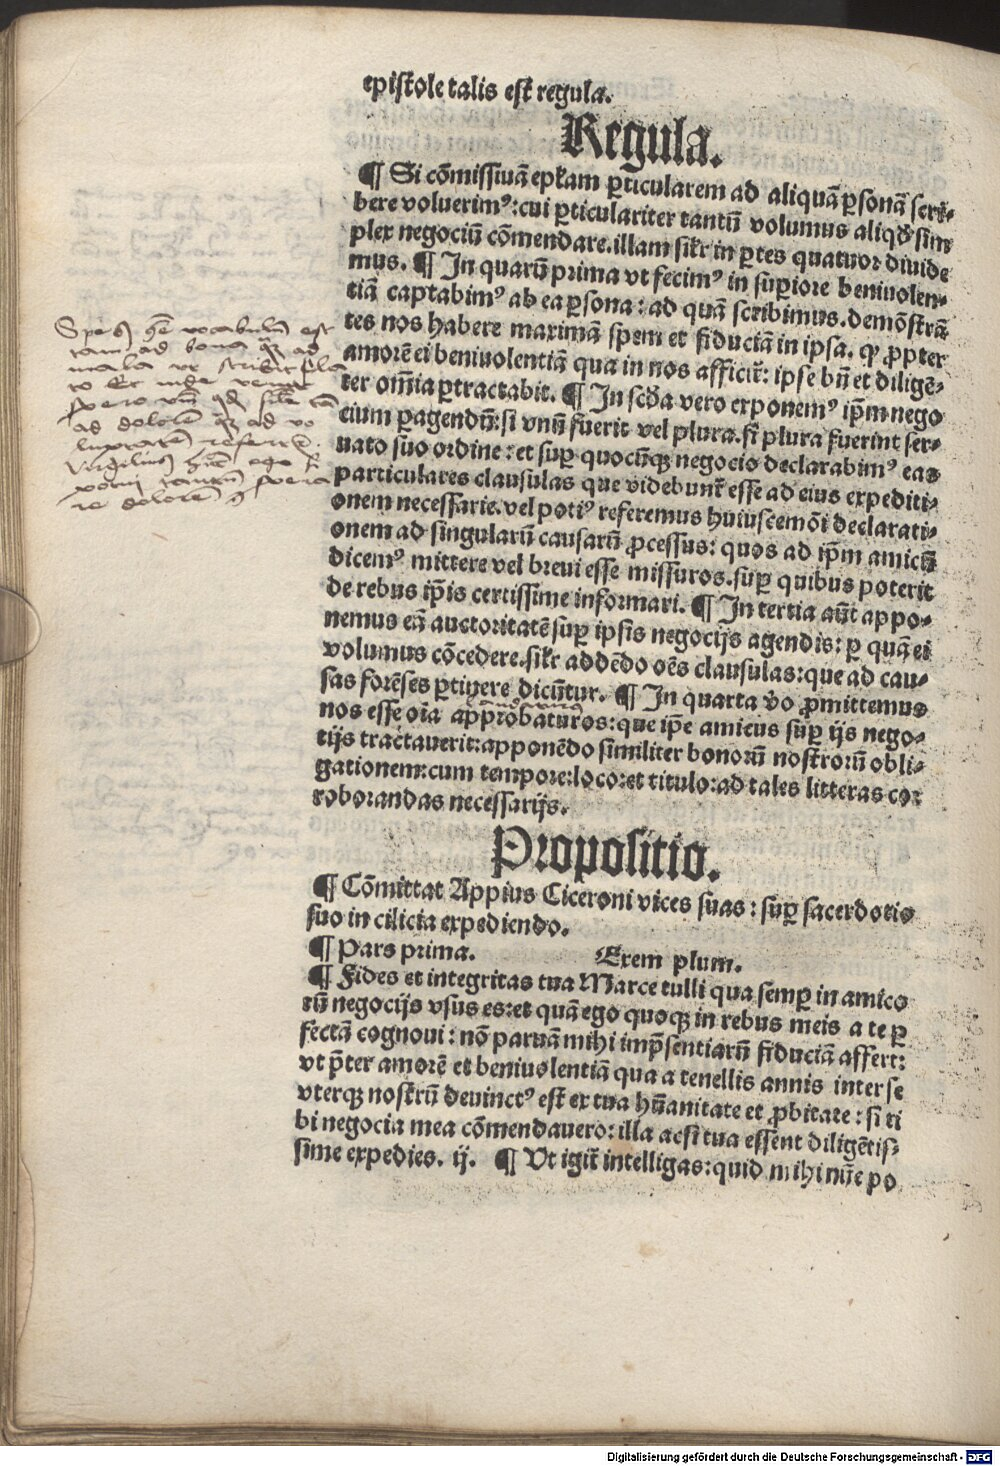 epistole talis est regula.
Regula.
¶ Si cōmissiuā epłam ꝑticularem ad aliquā ꝑsonā scri-
bere voluerimꝰ: cui ꝑticulariter tantū volumus aliqđ sim
plex negociū cōmendare. illam sił'r in ꝑtes quatuor diuide
mus. ¶ In quarū prima vt fecimꝰ in suꝑiore beniuolen-
tiā captabimꝰ ab ea ꝑsona: ad quā scribimus. demōstrā
tes nos habere maximā spem et fiduciā in ipsa. ꝙ ꝓpter
amorē ei beniuolentiā qua in nos afficit̄: ipse bn̄ et diligē-
ter om̄ia ꝑtractabit. ¶ In scd̄a vero exponemꝰ ip̄m nego
cium ꝑagendū: si vnū fuerit vel plura. si plura fuerint ser-
uato suo ordine: et suꝑ quocūqꝫ negocio declarabimꝰ eas
particulares clausulas que videbunt̄ esse ad eius expediti-
onem necessarie. vel potiꝰ referemus huiuscemōi declarati-
onem ad singularū causarū ꝓcessus: quos ad ip̄m amicū
dicemꝰ mittere vel breui esse missuros. suꝑ quibus poterit
de rebus ip̄is certissime informari. ¶ In tertia aūt appo-
nemus eā auctoritatē suꝑ ipsis negocijs agendis: ꝑ quā ei
volumus cōcedere. sił'r addēdo oēs clausulas: que ad cau-
sas forēses ꝑtinere dicūtur. ¶ In quarta v̄o ꝓmittemus
nos esse oīa approbaturos: que ip̄e amicus suꝑ ijs nego-
tijs tractauerit: apponēdo similiter bonorū nostrorū obli-
gationem: cum tempore: loco: et titulo: ad tales litteras cor
roborandas necessarijs.
Propositio.
¶ Cōmittat Appius Ciceroni vices suas: suꝑ sacerdotio
suo in cilicia expediendo.
¶ Pars prima. Exem plum.
¶ Fides et integritas tua Marce tulli qua semꝑ in amico
rū negocijs vsus es: et quā ego quoqꝫ in rebus meis a te ꝑ
fectā cognoui: nō paruā mihi imp̄sentiarū fiduciā affert:
vt p̄ter amorē et beniuolentiā qua a tenellis annis inter se
vterqꝫ nostrū deuinctꝰ est ex tua hūanitate et ꝓbitate: si ti
bi negocia mea cōmendauero: illa acsi tua essent diligētis-
sime expedies. ij. ¶ Vt igit̄ intelligas: quid mihi nūc po
Spes vocabulū est
tam ad bona ad
mala vt scribit
Et inde venit
spero
ad dolorē ad vo
luptatē
Virgilius ego
potui tantum spera
re dolorē